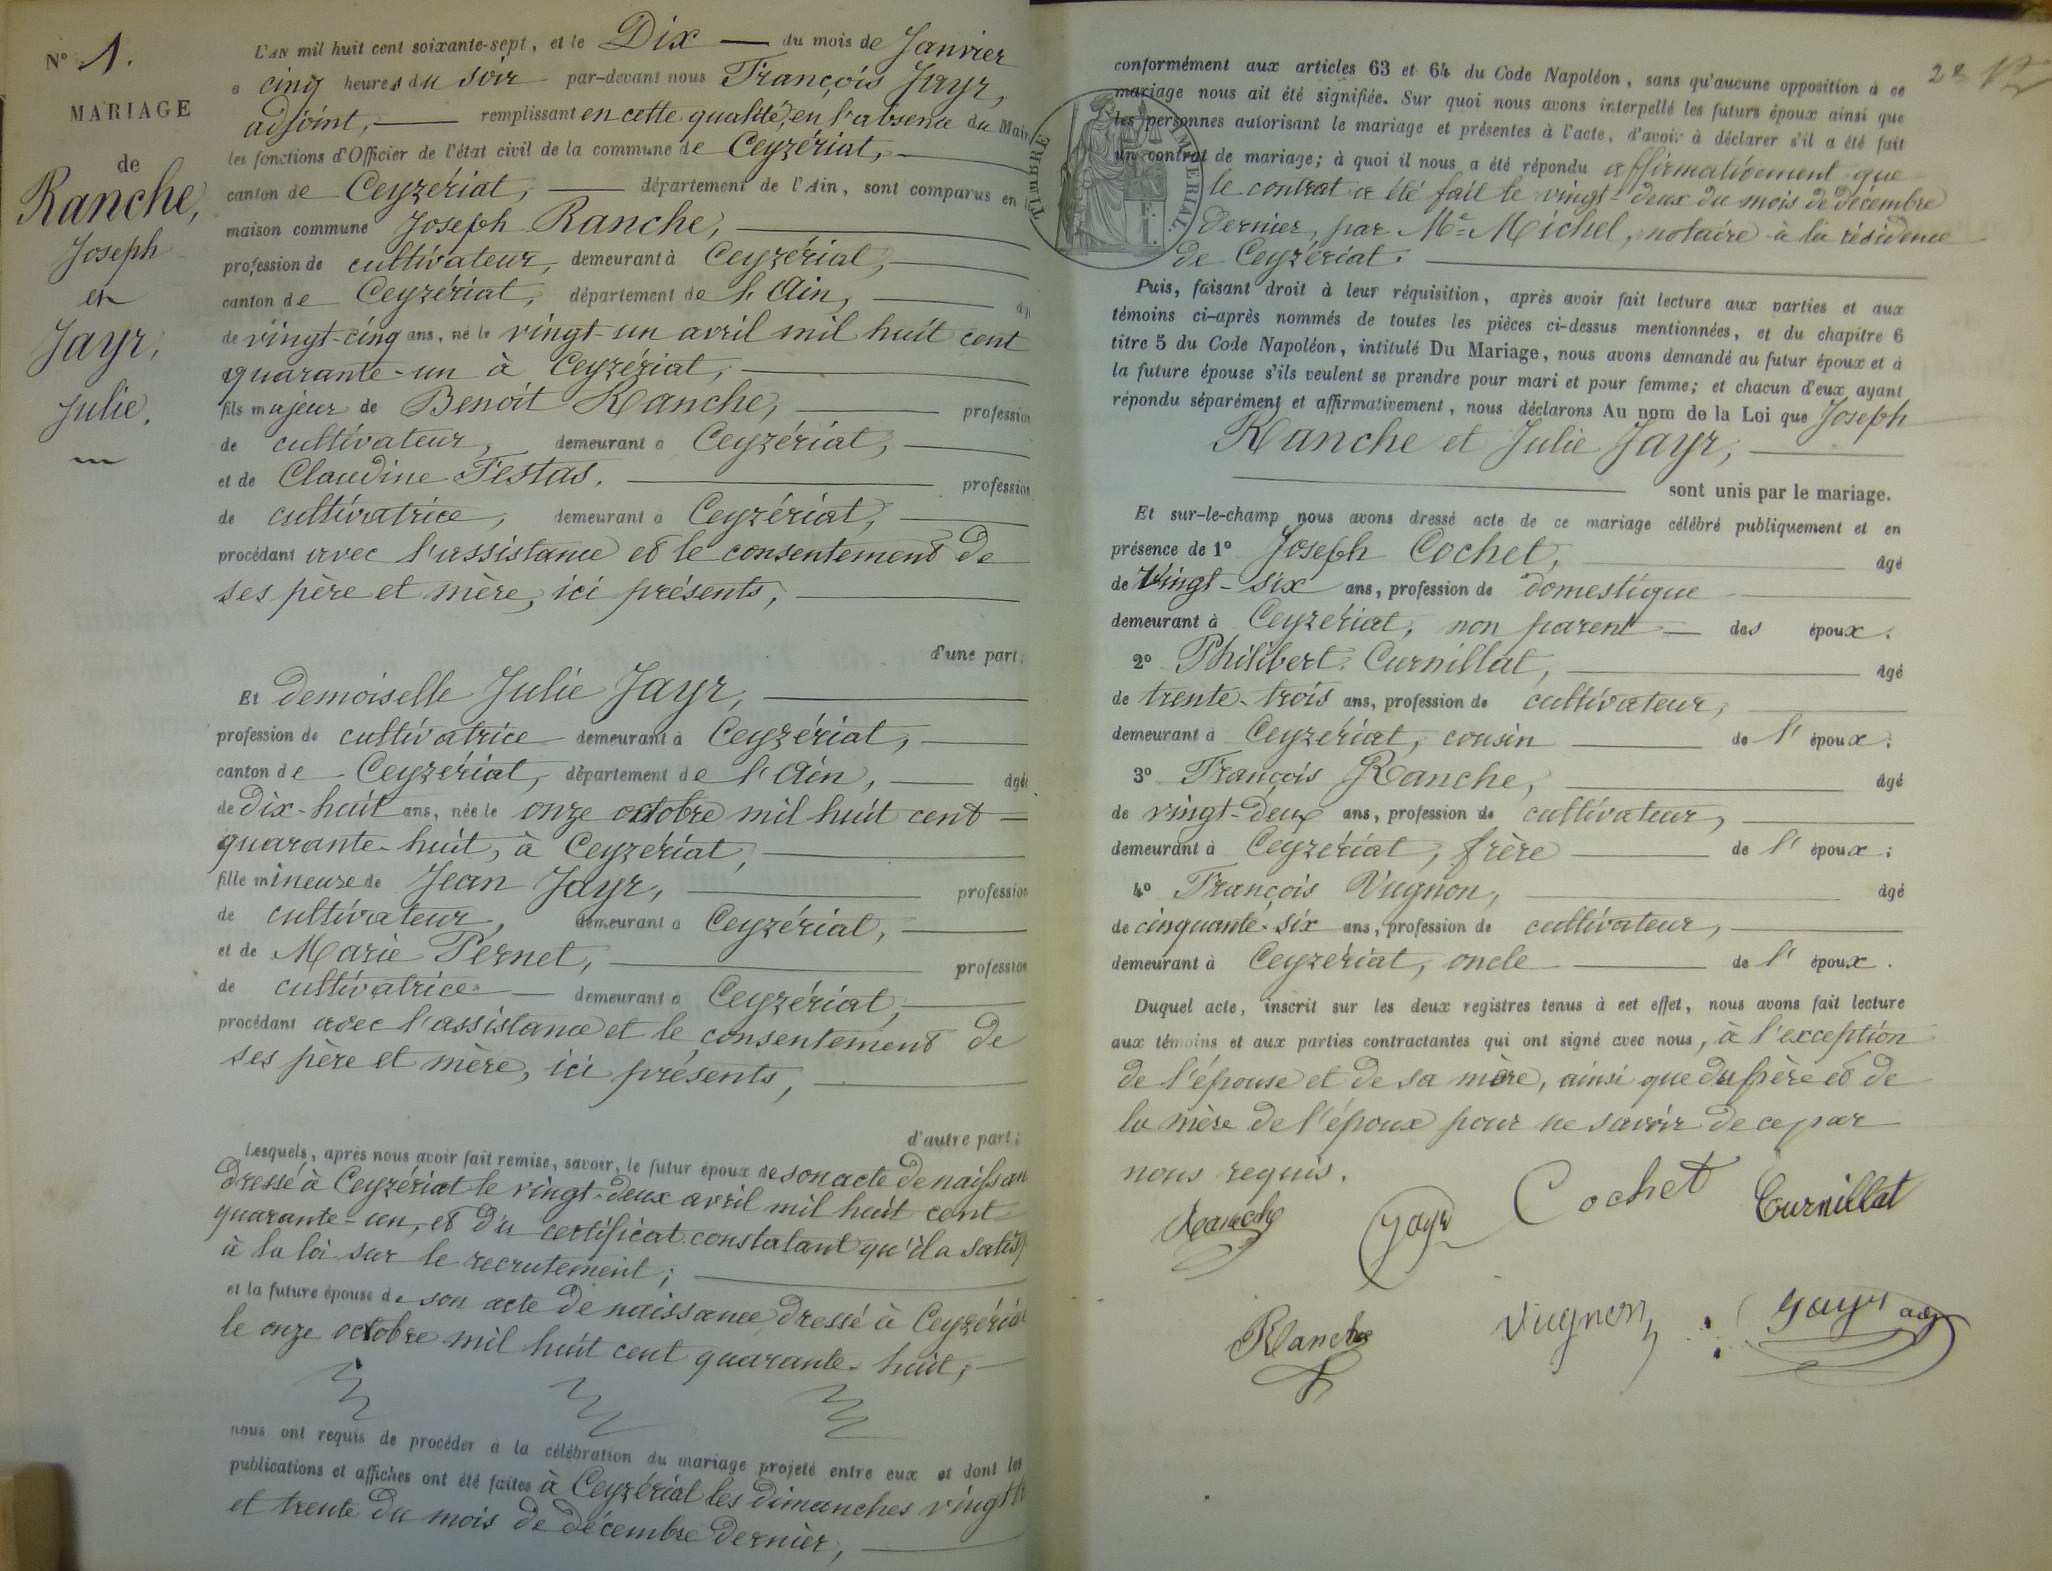 N° 1.
MARIAGE
de
Ranche,
Joseph
et
Jayr,
Julie.
L'AN mil huit cent soixante-sept, et le Dix du mois de Janvier
a cinq heures du soir par-devant nous François Jayr,
adjoint, remplissant en cette qualité, en l'absence du Mair
les fonctions d'Officier de l'état civil de la commune de Ceyzériat,
canton de Ceyzériat, département de l'Ain, sont comparus en
maison commune Joseph Ranche,
profession de cultivateur, demeurant à Ceyzériat,
canton de Ceyzériat, département de l'Ain,
de vingt-cinq ans, né le vingt-un avril mil huit cent
quarante-un à Ceyzériat,
fils majeur de Benoit Ranche, profession
de cultivateur, demeurant a Ceyzériat,
et de Claudine Festas. profession
de cultivatrice, demeurant a Ceyzériat,
procédant avec l'assistance et le consentement de
ses père et mère, ici présents,
d'une part;
Et demoiselle Julie Jayr,
profession de cultivatrice demeurant à Ceyzériat,
canton de Ceyzériat, département de l'Ain, âgé
de dix-huit ans, née le onze octobre mil huit cent
quarante-huit, à Ceyzériat,
fille mineure de Jean Jayr, profession
de cultivateur, demeurant a Ceyzériat,
et de Marie Pernet, profession
de cultivatrice demeurant a Ceyzériat,
procédant avec l'assistance et le consentement de
ses père et mère, ici présents,
d'autre part;
Lesquels, après nous avoir fait remise, savoir, le futur époux de son acte de naissan
dressé à Ceyzériat le vingt-deux avril mil huit cent
quarante-un, et du certificat constatant qu'il a satisf
à la loi sur le recrutement;
et la future épouse de son acte de naissance dressé à Ceyzéria
le onze octobre mil huit cent quarante-huit,
nous ont requis de procéder à la célébration du mariage projeté entre eux et dont les
publications et affiches ont été faites à Ceyzériat les dimanches vingt
et trente du mois de décembre dernier,
conformément aux articles 63 et 64 du Code Napoléon, sans qu'aucune opposition à ce
mariage nous ait été signifiée. Sur quoi nous avons interpellé les futurs époux ainsi que
les personnes autorisant le mariage et présentes à l'acte, d'avoir à déclarer s'il a été fait
un contrat de mariage; à quoi il nous a été répondu affirmativement que
le contrat a été fait le vingt-deux du mois de décembre
dernier, par Me Michel, notaire à la résidence
de Ceyzériat.
TIMBRE IMPERIAL.
Puis, faisant droit à leur réquisition, après avoir fait lecture aux parties et aux
témoins ci-après nommés de toutes les pièces ci-dessus mentionnées, et du chapitre 6
titre 5 du Code Napoléon, intitulé Du Mariage, nous avons demandé au futur époux et à
la future épouse s'ils veulent se prendre pour mari et pour femme; et chacun d'eux ayant
répondu séparément et affirmativement, nous déclarons Au nom de la Loi que Joseph
Ranche et Julie Jayr,
sont unis par le mariage.
Et sur-le-champ nous avons dressé acte de ce mariage célébré publiquement et en
présence de 1° Joseph Cochet, âgé
de vingt-six ans, profession de domestique
demeurant à Ceyzériat, non parent des époux.
2° Philibert Curnillat, âgé
de trente-trois ans, profession de cultivateur,
demeurant à Ceyzériat, cousin de l'époux.
3° François Ranche, âgé
de vingt-deux ans, profession de cultivateur,
demeurant à Ceyzériat, frère de l'époux;
4° François Vugnon, âgé
de cinquante-six ans, profession de cultivateur,
demeurant à Ceyzériat, oncle de l'époux.
Duquel acte, inscrit sur les deux registres tenus à cet effet, nous avons fait lecture
aux témoins et aux parties contractantes qui ont signé avec nous, à l'exception
de l'épouse et de sa mère, ainsi que du père et de
la mère de l'époux pour ne savoir de ce par
nous requis.
Ranche Jayr Cochet Curnillat
Ranche Vugnon Jayr adj